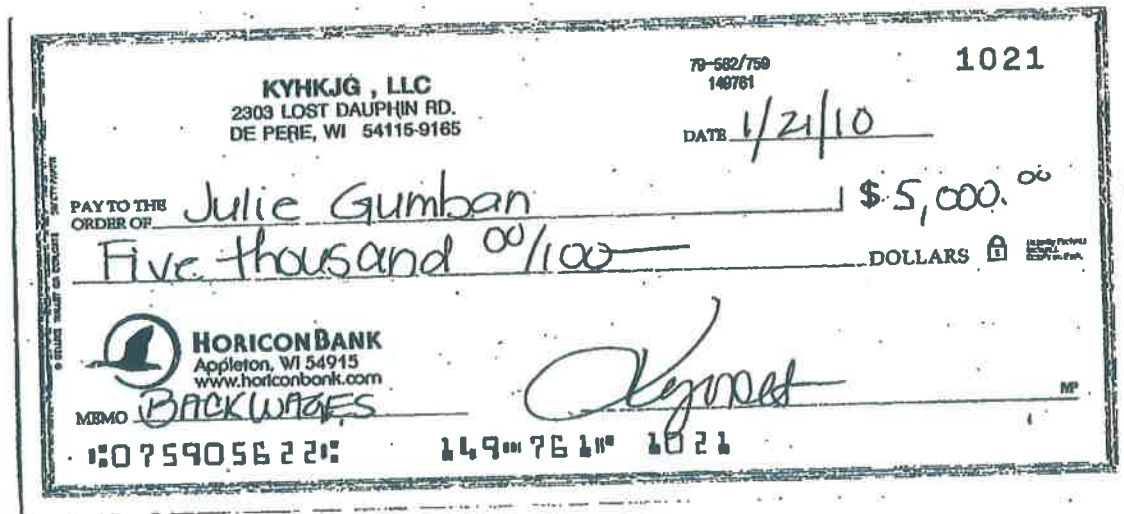 1021
79-582/759
149761
KYHKJG , LLC
2303 LOST DAUPHIN RD.
DE PERE, WI 54115-9165
DATE 1/21/10
PAY TO THE
ORDER OF Julie Gumban $ 5,000.00
Five thousand 00/100 DOLLARS
HORICON BANK
Appleton, WI 54915
www.horiconbank.com
MEMO BACKWAGES MP
⑆075905622⑆ 149⑉761⑈ 1021